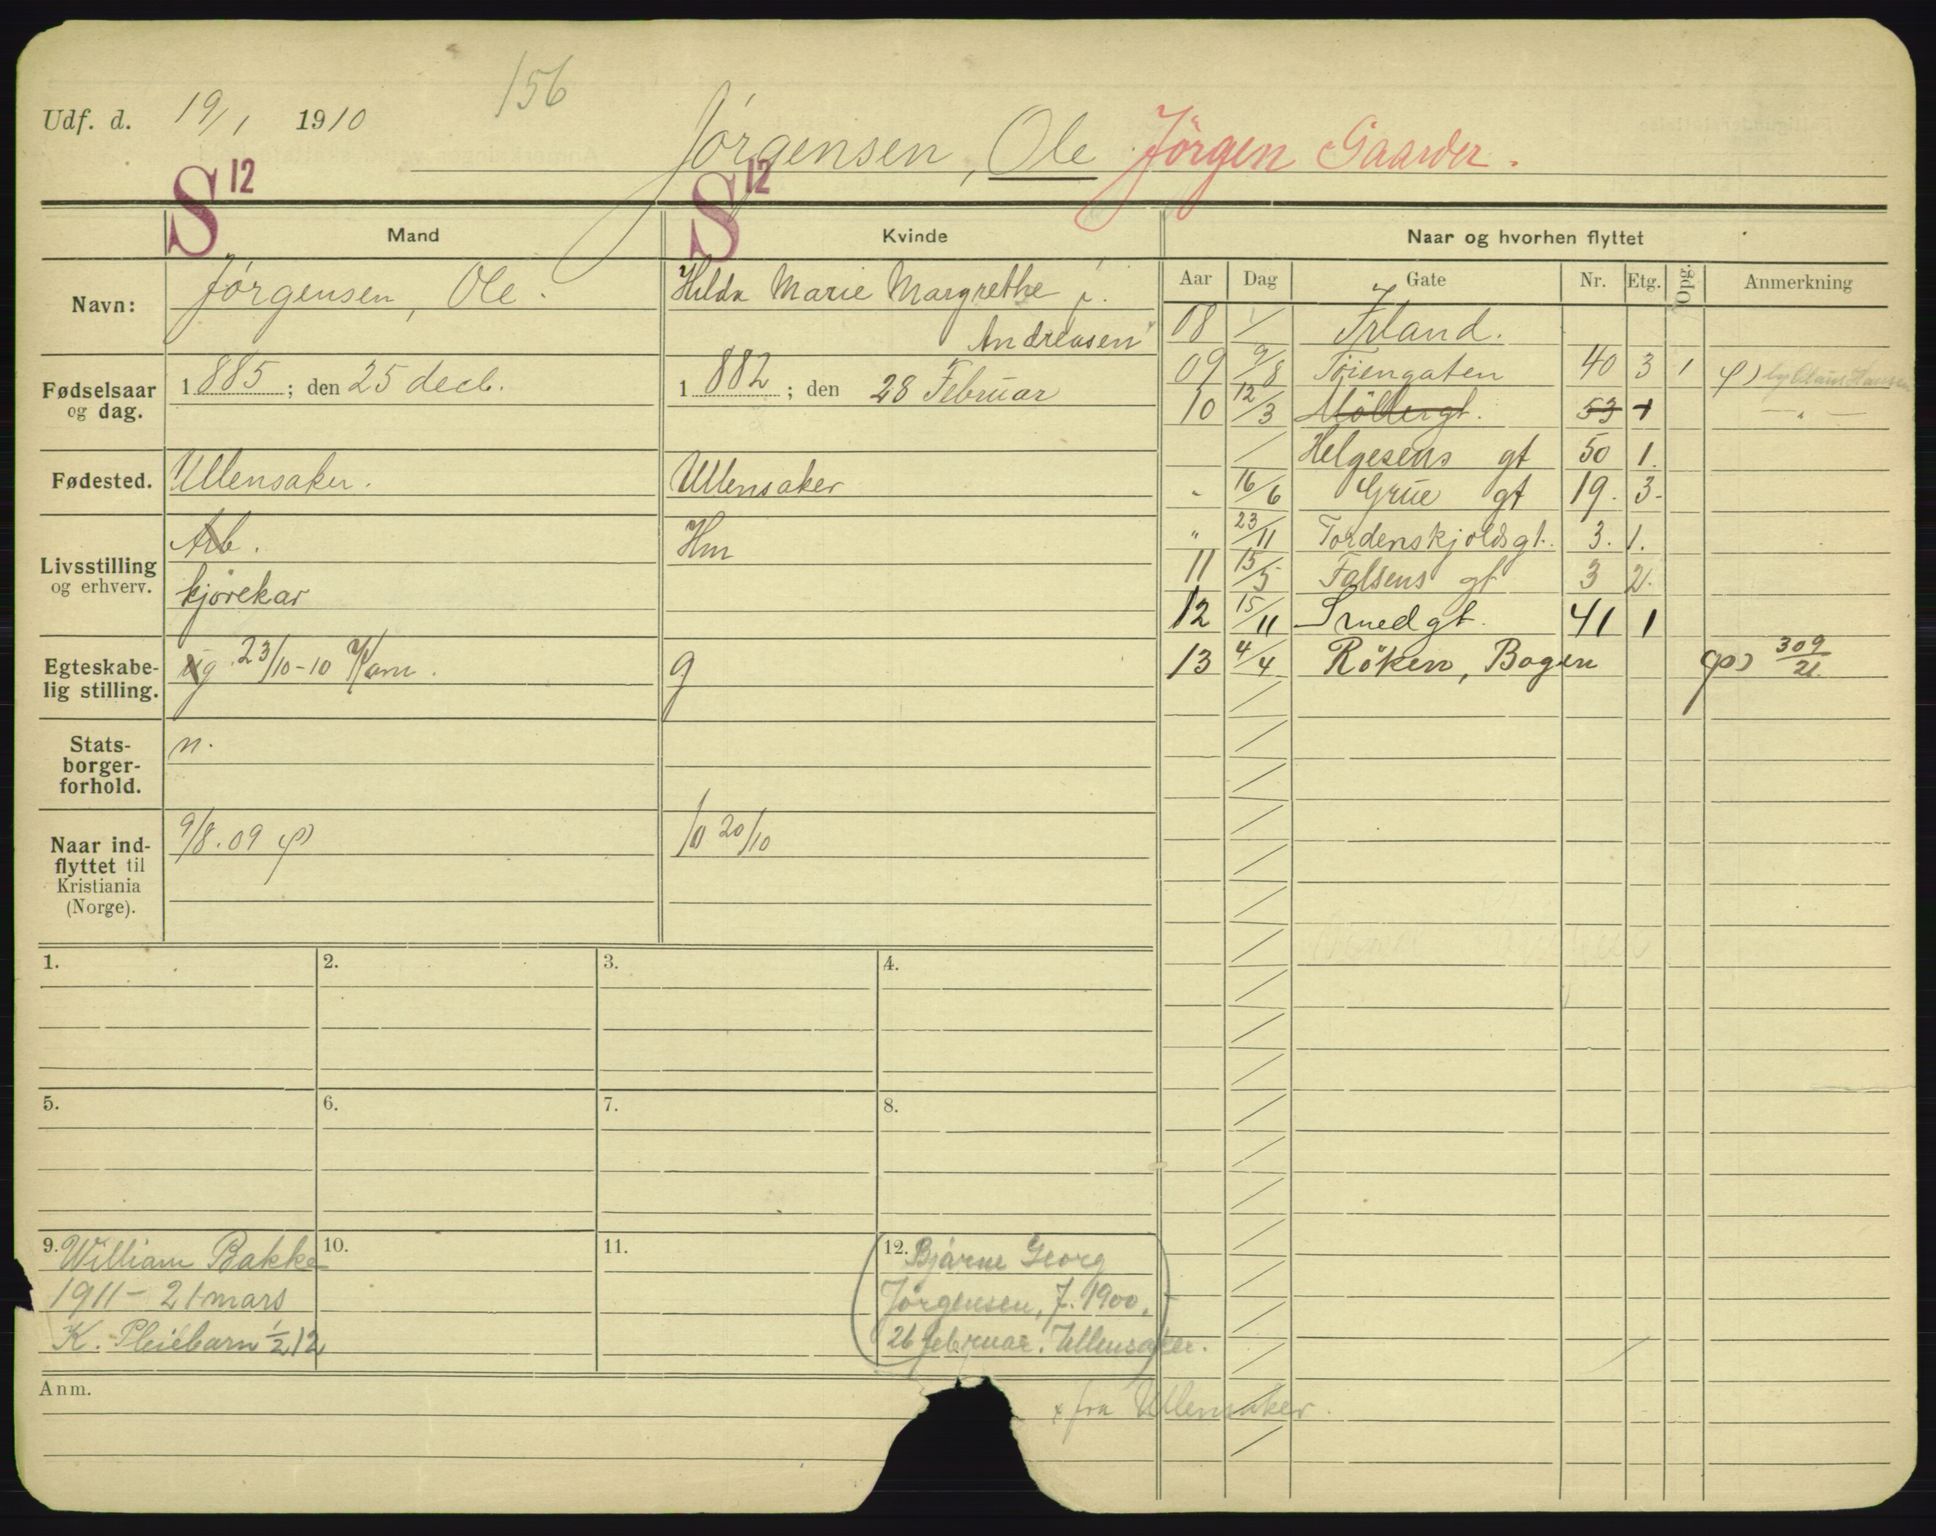 156
Udf. d. 19/1 1910
Jørgensen, Ole Jørgen Gaarder.
S 12 S 12
Mand Kvinde
Navn: Jørgensen, Ole. Hilda Marie Margrethe f.
Andreasen
Fødselsaar og dag. 1885; den 25 decb. 1882; den 28 Februar
Fødested. Ullensaker. Ullensaker
Livsstilling og erhverv. Arb. Hm
kjørekar
Egteskabelig stilling. ug 23/10-10 Kam. g
Statsborgerforhold. n.
Naar indflyttet til Kristiania (Norge). 9/8.09 20/10
Naar og hvorhen flyttet
Aar Dag Gate Nr. Etg. Opg. Anmerkning
08 / Irland.
09 9/8 Tøiengaten 40 3 1 Claus Hansen
10 12/3 Møllergt. 53 1 — " —
/ Helgesens gt 50 1.
" 16/6 Grüe gt 19. 3.
" 23/11 Tordenskjoldsgt. 3. 1.
11 15/5 Falsens gt 3 2.
12 15/11 Smedgt. 41 1
13 4/4 Røken, Bogen 309/21.
1. 2. 3. 4.
5. 6. 7. 8.
9. William Bakke
1911 - 21 mars
K. Pleiebarn 1/2 12
10. 11.
12. Bjarne Georg
Jørgensen, f. 1900.
26 februar. Ullensaker.
Anm.
x fra Ullensaker.